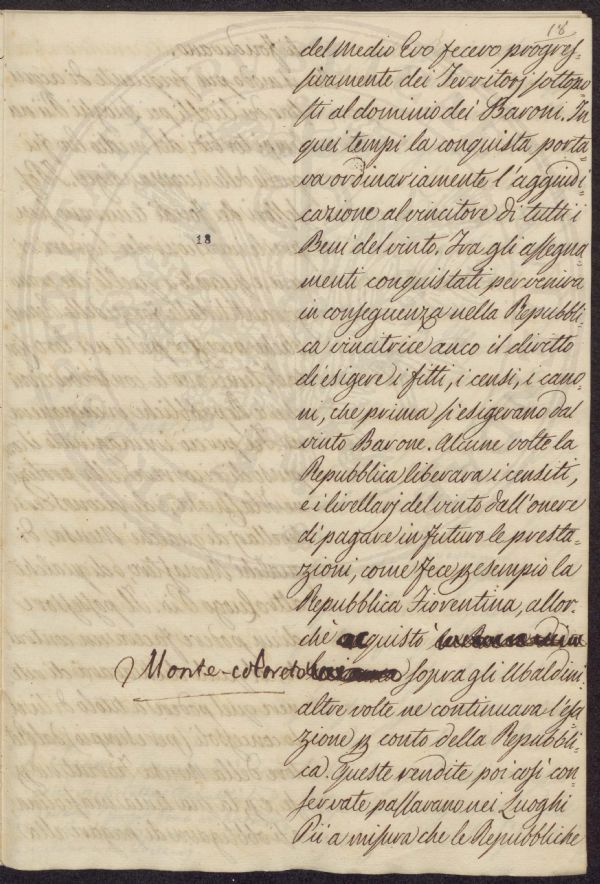 18
del Medio Evo fecero progres=
sivamente dei Territorj sottopo=
sti al dominio dei Baroni. In
quei tempi la conquista porta=
va ordinariamente l'aggiudi=
cazione al vincitore di tutti i
Beni del vinto. Fra gli assegna=
menti conquistati perveniva
in conseguenza nella Repubbli=
ca vincitrice anco il diritto
di esigere i fitti, i censi, i cano=
ni, che prima si esigevano dal
vinto Barone. Alcune volte la
Repubblica liberava i censiti,
e i livellarj del vinto dall'onere
di pagare in futuro le presta=
zioni, come fece p esempio la
Repubblica Fiorentina, allor=
chè acquistò
Monte-coloreto sopra gli Ubaldini:
altre volte ne continuava l'esa=
zione p conto della Repubbli=
ca. Queste rendite poi così con=
servate passavano nei Luoghi
Pii a misura che le Repubbliche
18